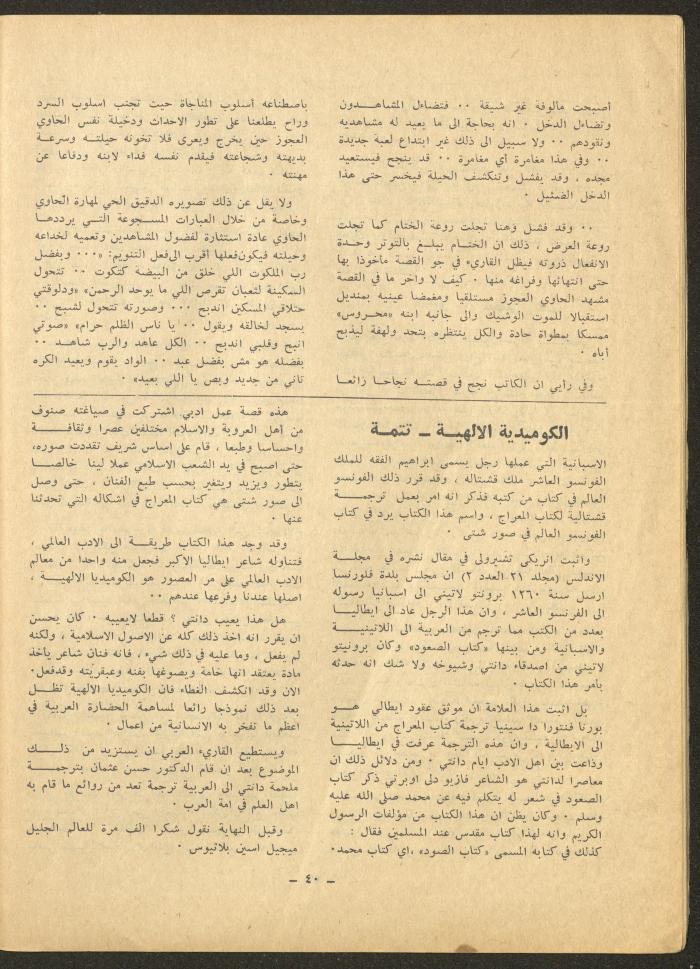 أصبحت مألوفة غير شيقة ٠٠ فتضاءل المشاهدون
وتضاءل الدخل ٠ انه بحاجة الى ما يعيد له مشاهديه
ونقودهم ٠٠ ولا سبيل الى ذلك غير ابتداع لعبة جديدة
٠٠ وفي هذا مغامرة أي مغامرة ٠٠ قد ينجح فيستعيد
مجده ، وقد يفشل وتنكشف الحيلة فيخسر حتى هذا
الدخل الضئيل ٠
٠٠ وقد فشل وهنا تجلت روعة الختام كما تجلت
روعة العرض ، ذلك ان الختام يبلغ بالتوتر وحدة
الانفعال ذروته فيظل القاريء في جو القصة مأخوذا بها
حتى انتهائها وفراغه منها ٠ كيف لا وآخر ما في القصة
مشهد الحاوي العجوز مستلقيا ومغمضا عينيه بمنديل
استقبالا للموت الوشيك والى جانبه ابنه «محروس»
ممسكا بمطواة حادة والكل ينتظره بتحد ولهفة ليذبح
أباه ٠
وفي رأيي ان الكاتب نجح في قصته نجاحا رائعا
باصطناعه أسلوب المناجاة حيث تجنب اسلوب السرد
وراح يطلعنا على تطور الاحداث ودخيلة نفس الحاوي
العجوز حين يخرج ويعرى فلا تخونه حيلته وسرعة
بديهته وشجاعته فيقدم نفسه فداء لابنه ودفاعا عن
مهنته ٠
ولا يقل عن ذلك تصويره الدقيق الحي لمهارة الحاوي
وخاصة من خلال العبارات المسجوعة التي يرددها
الحاوي عادة استثارة لفضول المشاهدين وتعميه لخداعه
وحيلته فيكون فعلها أقرب الى فعل التنويم: «٠٠٠ وبفضل
رب الملكوت اللي خلق من البيضة كتكوت ٠٠ تتحول
السكينة لثعبان تقرص اللي ما يوحد الرحمن» «ودلوقتي
حتلاقي المسكين اندبح ٠٠٠ وصورته تتحول لشبح ٠٠
يسجد لخالقه ويقول ٠٠ يا ناس الظلم حرام» «صوتي
انبح وقلبي اندبح ٠٠ الكل عاهد والرب شاهد ٠٠
بفضله هو مش بفضل عبد ٠٠ الواد يقوم ويعيد الكره
تاني من جديد وبص يا اللي بعيد» ٠
الكوميدية الالهية ــ تتمة
الاسبانية التي عملها رجل يسمى ابراهيم الفقه للملك
الفونسو العاشر ملك قشتاله ، وقد قرر ذلك الفونسو
العالم في كتاب من كتبه فذكر انه امر بعمل ترجمة
قشتالية لكتاب المعراج ، واسم هذا الكتاب يرد في كتاب
الفونسو العالم في صور شتى ٠
واثبت انريكى تشيرولى في مقال نشره في مجلة
الاندلس (مجلد ٢١ العدد ٢) ان مجلس بلدة فلورنسا
ارسل سنة ١٢٦٠ برونتو لاتيني الى اسبانيا رسوله
الى الفرنسو العاشر ، وان هذا الرجل عاد الى ايطاليا
بعدد من الكتب مما ترجم من العربية الى اللاتينية
والاسبانية ومن بينها «كتاب الصعود» وكان برونيتو
لاتيني من اصدقاء دانتي وشيوخه ولا شك انه حدثه
بأمر هذا الكتاب ٠
بل اثبت هذا العلامة ان موثق عقود ايطالي هو
بورنا فنتورا دا سيينيا ترجمة كتاب المعراج من اللاتينية
الى الايطالية ، وان هذه الترجمة عرفت في ايطاليا
وذاعت بين اهل الادب ايام دانتي ٠ ومن دلائل ذلك ان
معاصرا لدانتي هو الشاعر فازيو دلى اوبرتي ذكر كتاب
الصعود في شعر له يتكلم فيه عن محمد صلى الله عليه
وسلم ٠ وكان يظن ان هذا الكتاب من مؤلفات الرسول
الكريم وانه لهذا كتاب مقدس عند المسلمين فقال :
كذلك في كتابه المسمى «كتاب الصود» ،اي كتاب محمد٠
هذه قصة عمل ادبي اشتركت في صياغته صنوف
من أهل العروبة والاسلام مختلفين عصرا وثقافة
واحساسا وطبعا ، قام على اساس شريف تقددت صوره،
حتى اصبح في يد الشعب الاسلامي عملا لينا خالصا
يتطور ويزيد ويتغير بحسب طبع الفنان ، حتى وصل
الى صور شتى هي كتاب المعراج في اشكاله التي تحدثنا
عنها ٠
وقد وجد هذا الكتاب طريقة الى الادب العالمي ،
فتناوله شاعر ايطاليا الاكبر فجعل منه واحدا من معالم
الادب العالمي على مر العصور هو الكوميديا الالهية ،
اصلها عندنا وفرعها عندهم ٠٠
هل هذا يعيب دانتي ؟ قطعا لايعيبه ٠ كان يحسن
ان يقرر انه اخذ ذلك كله عن الاصول الاسلامية ، ولكنه
لم يفعل ، وما عليه في ذلك شيء ، فانه فنان شاعر ياخذ
مادة يعتقد انها خامة ويصوغها بفنه وعبقريته وقدفعل٠
الان وقد انكشف الغطاء فان الكوميديا الالهية تظل
بعد ذلك نموذجا رائعا لمساهمة الحضارة العربية في
اعظم ما تفخر به الانسانية من اعمال ٠
ويستطيع القاريء العربي ان يستزيد من ذلك
الموضوع بعد ان قام الدكتور حسن عثمان بترجمة
ملحمة دانتي الى العربية ترجمة تعد من روائع ما قام به
اهل العلم في امة العرب ٠
وقبل النهاية نقول شكرا الف مرة للعالم الجليل
ميجيل اسين بلاثيوس ٠
ــ ٤٠ ــ